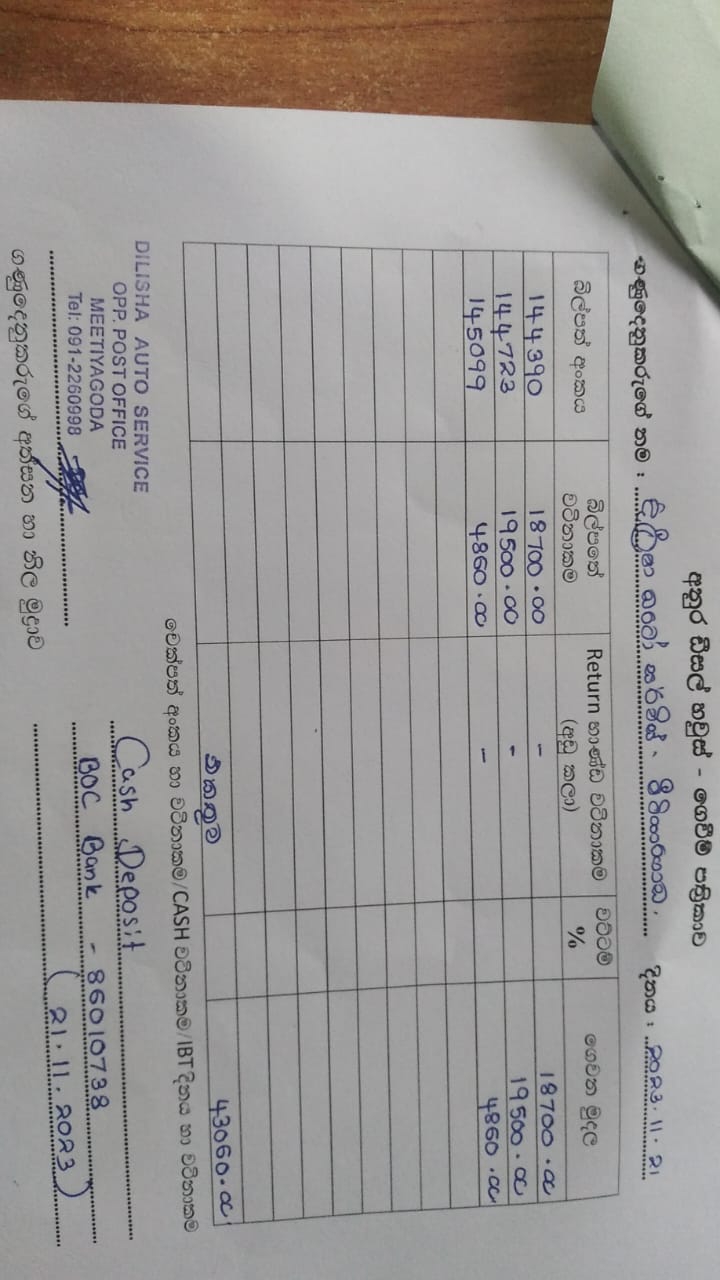 අනුර ඩීසල් හවුස් - ගෙවීම් පත්‍රිකාව
ගණුදෙනුකරුගේ නම : දිලීෂා ඔටෝ සර්විස්, මීටියාගොඩ. දිනය : 2023.11.21
බිල්පත් අංකය බිල්පතේ වටිනාකම Return භාණ්ඩ වටිනාකම (අඩු කලා) වට්ටම් % ගෙවන මුදල
144390 18700.00 - 18700.00
144723 19500.00 - 19500.00
145099 4860.00 - 4860.00
එකතුව 43060.00
චෙක්පත් අංකය හා වටිනාකම/CASH වටිනාකම/IBT දිනය හා වටිනාකම
DILISHA AUTO SERVICE
OPP. POST OFFICE
MEETIYAGODA
Tel: 091-2260998
Cash Deposit
BOC Bank - 86010738
(21.11.2023)
ගණුදෙනුකරුගේ අත්සන හා නිල මුද්‍රාව